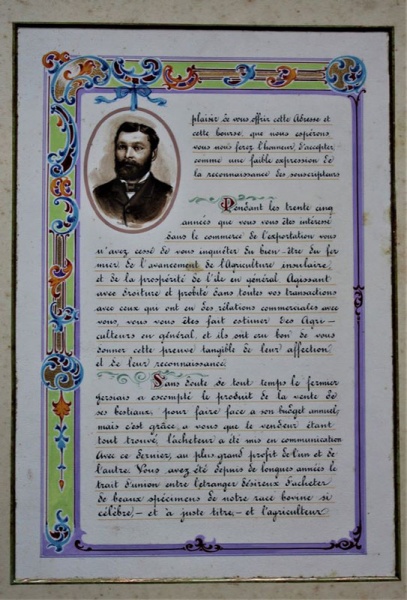 plaisir à vous offrir cette Adresse et
cette bourse que nous espérons
vous nous ferez l'honneur d'accepter
comme une faible expression de
la reconnaissance des souscripteurs
Pendant les trente cinq
années que vous vous êtes intéressé
dans le commerce de l'exportation vous
n'avez cessé de vous inquiéter du bien-être du fer
mier de l'avancement de l'Agriculture insulaire,
et de la prospérité de l'île en général Agissant
avec droiture et probité dans toutes vos transactions
avec ceux qui ont eu des rélations commerciales avec
vous, vous vous êtes fait estimer des Agri-
culteurs en général, et ils ont cru bon de vous
donner cette preuve tangible de leur affection
et de leur reconnaissance.
Sans doute de tout temps le fermier
Jersiais a escompté le produit de la vente de
ses bestiaux, pour faire face a son budget annuel,
mais c'est grâce, a vous que le vendeur étant
tout trouvé, l'acheteur a été mis en communication
Avec ce dernier, au plus grand profit de l'un et de
l'autre. Vous avez été depuis de longues années le
trait d'union entre l'etranger désireux d'acheter
de beaux spécimens de notre race bovine si
célèbre,- et à juste titre,- et l'agriculteur